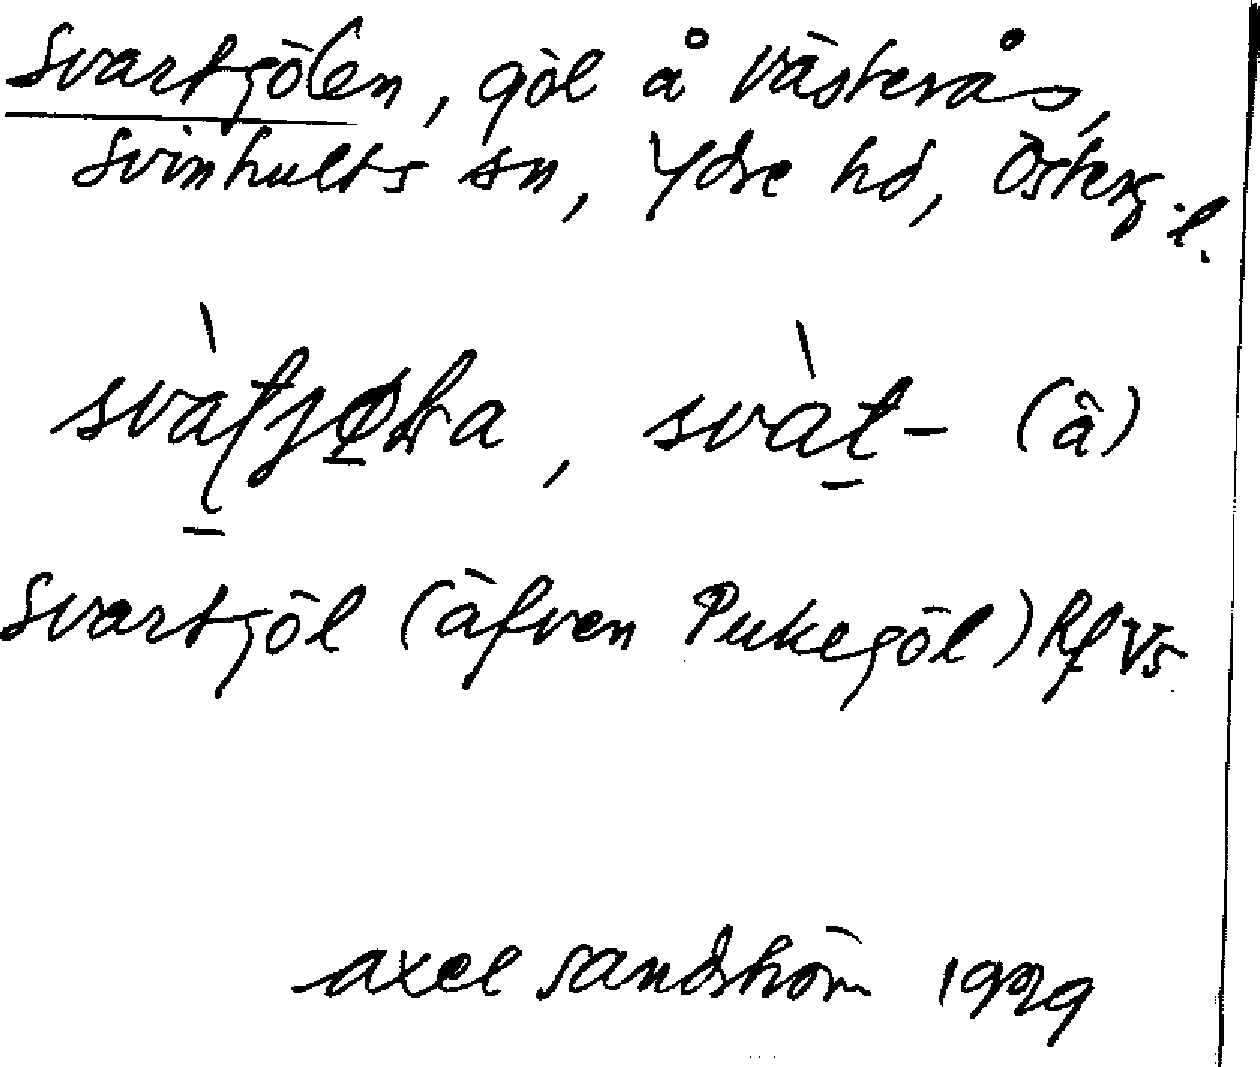 Svartgölen, göl å Västerås,
Svinhults sn, Ydre hd, Östergl.
svàt-   (à)
Svartgöl (äfven Pukegöl) Rf Vs
Axel Sandström 1929